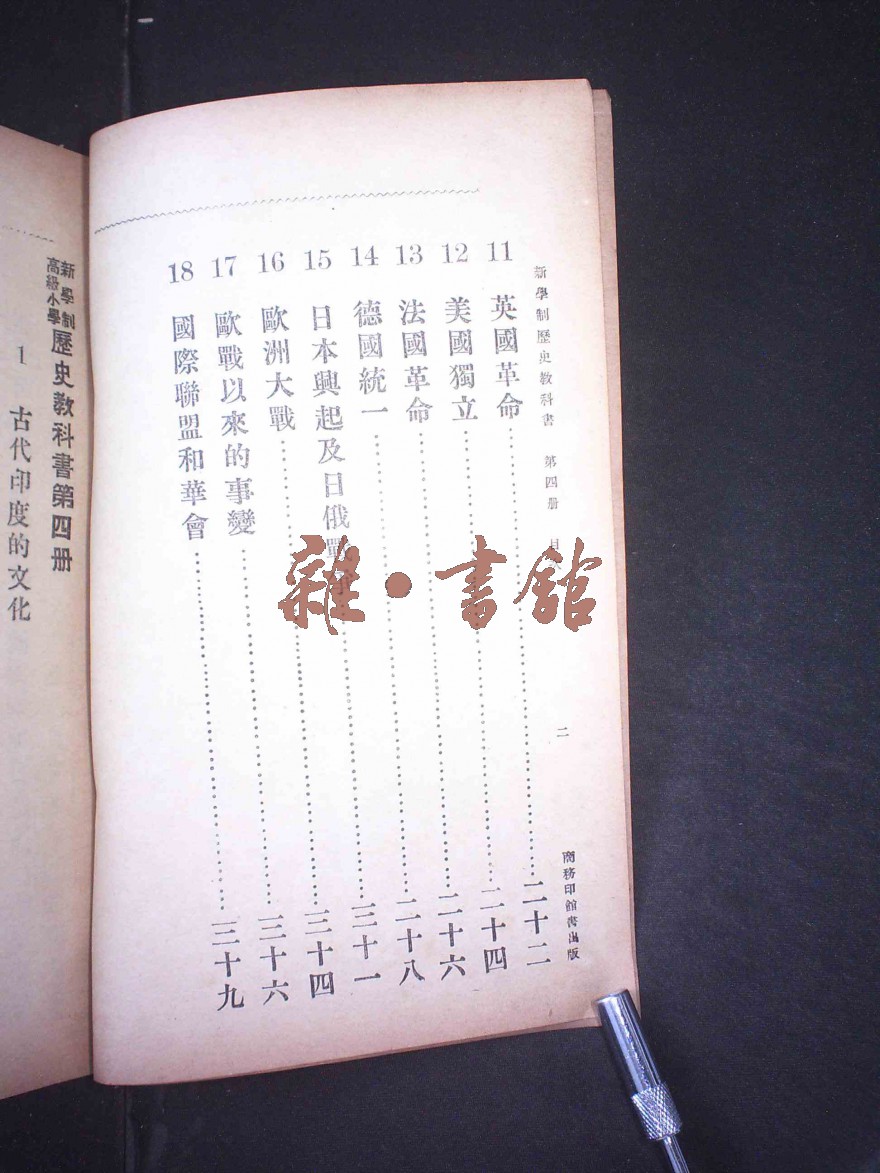 新學制歷史教科書 第四册 目 二 商務印館書出版
11 英國革命……二十二
12 美國獨立……二十四
13 法國革命……二十六
14 德國統一……二十八
15 日本興起及日俄戰爭……三十一
16 歐洲大戰……三十四
17 歐戰以來的事變……三十六
18 國際聯盟和華會……三十九
新學制高級小學歷史教科書第四册
1 古代印度的文化
雜·書館